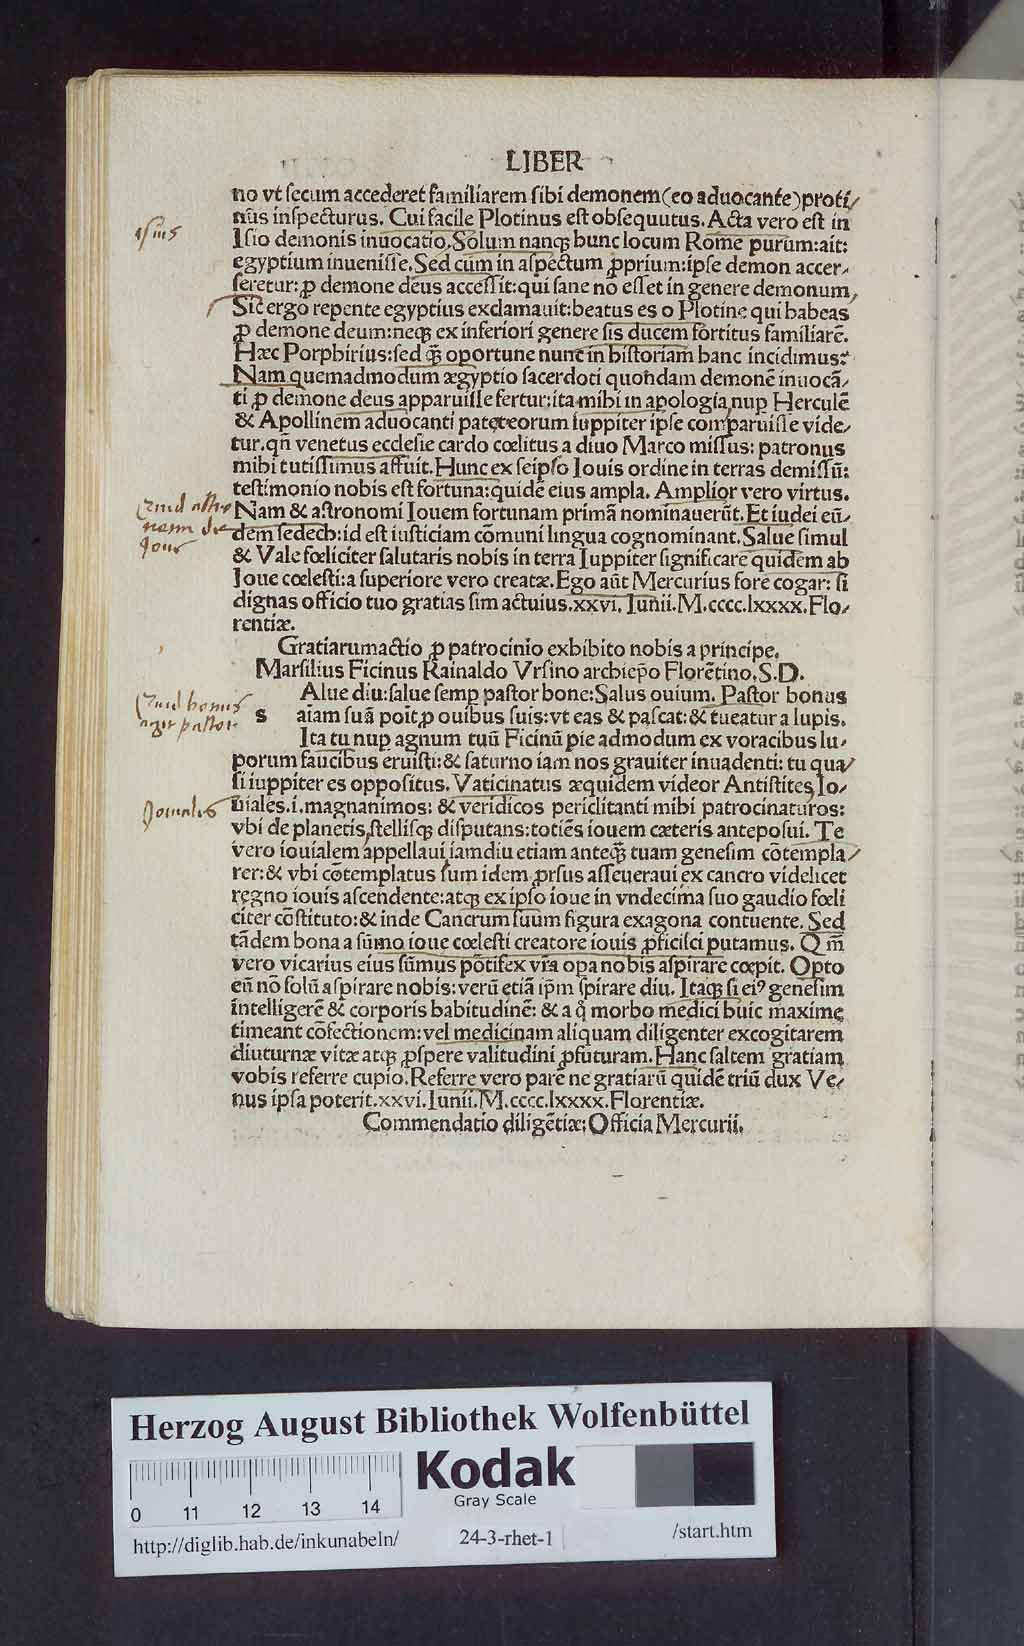 LIBER
no vt secum accederet familiarem sibi demonem (eo aduocante) proti/
nus inspecturus. Cui facile Plotinus est obsequutus. Acta vero est in
Isio demonis inuocatio. Solum nanqꝫ hunc locum Rome purum: ait:
egyptium inuenisse. Sed cum in aspectum ꝓprium: ipse demon accer/
seretur: ꝓ demone deus accessit: qui sane nō esset in genere demonum,
Sic ergo repente egyptius exclamauit: beatus es o Plotine qui habeas
ꝓ demone deum: neqꝫ ex inferiori genere sis ducem sortitus familiarē.
Hæc Porphirius: sed qm̄ oportune nunc in historiam hanc incidimus:
Nam quemadmodum ægyptio sacerdoti quondam demonē inuocā/
ti ꝓ demone deus apparuisse fertur: ita mihi in apologia nuꝑ Herculē
& Apollinem aduocanti patereorum Iuppiter ipse comparuisse vide/
tur. qn̄ venetus ecclesie cardo cœlitus a diuo Marco missus: patronus
mihi tutissimus affuit. Hunc ex seipso Iouis ordine in terras demissū:
testimonio nobis est fortuna: quidē eius ampla. Amplior vero virtus.
Nam & astronomi Iouem fortunam primā nominauerūt. Et iudei eū/
dem sedech: id est iusticiam cōmuni lingua cognominant. Salue simul
& Vale fœliciter salutaris nobis in terra Iuppiter significare quidem ab
Ioue cœlesti: a superiore vero creatæ. Ego aūt Mercurius fore cogar: si
dignas officio tuo gratias sim actuius. xxvi. Iunii. M.cccc.lxxxx. Flo/
rentiæ.
Gratiarumactio ꝓ patrocinio exhibito nobis a principe.
Marsilius Ficinus Rainaldo Vrsino archiep̄o Florētino. S.D.
s Alue diu: salue semꝑ pastor bone: Salus ouium. Pastor bonus
aīam suā poit ꝓ ouibus suis: vt eas & pascat: & tueatur a lupis.
Ita tu nuꝑ agnum tuū Ficinū pie admodum ex voracibus lu/
porum faucibus eruisti: & saturno iam nos grauiter inuadenti: tu qua/
si iuppiter es oppositus. Vaticinatus æquidem videor Antistites Io/
uiales .i. magnanimos: & veridicos periclitanti mihi patrocinaturos:
vbi de planetis, stellisqꝫ disputans: totiēs iouem cæteris anteposui. Te
vero iouialem appellaui iamdiu etiam anteqm̄ tuam genesim cōtempla/
rer: & vbi cōtemplatus sum idem ꝓrsus asseueraui ex cancro videlicet
regno iouis ascendente: atqꝫ ex ipso ioue in vndecima suo gaudio fœli
citer cōstituto: & inde Cancrum suum figura exagona contuente. Sed
tādem bona a sūmo ioue cœlesti creatore iouis ꝓficisci putamus. Qm̄
vero vicarius eius sūmus pōtifex vr̄a opa nobis aspirare cœpit. Opto
eū nō solū aspirare nobis: verū etiā ip̄m spirare diu. Itaqꝫ si eiꝰ genesim
intelligerē & corporis habitudinē: & a q̊ morbo medici huic maxime
timeant cōfectionem: vel medicinam aliquam diligenter excogitarem
diuturnæ vitæ atqꝫ ꝓspere valitudini ꝓfuturam. Hanc saltem gratiam
vobis referre cupio. Referre vero parē ne gratiarū quidē triū dux Ve/
nus ipsa poterit. xxvi. Iunii. M.cccc.lxxxx. Florentiæ.
Commendatio diligētiæ: Officia Mercurii.
Quid bonus
Iouiales
Herzog August Bibliothek Wolfenbüttel
Kodak
Gray Scale
0 11 12 13 14
http://diglib.hab.de/inkunabeln/ 24-3-rhet-1 /start.htm